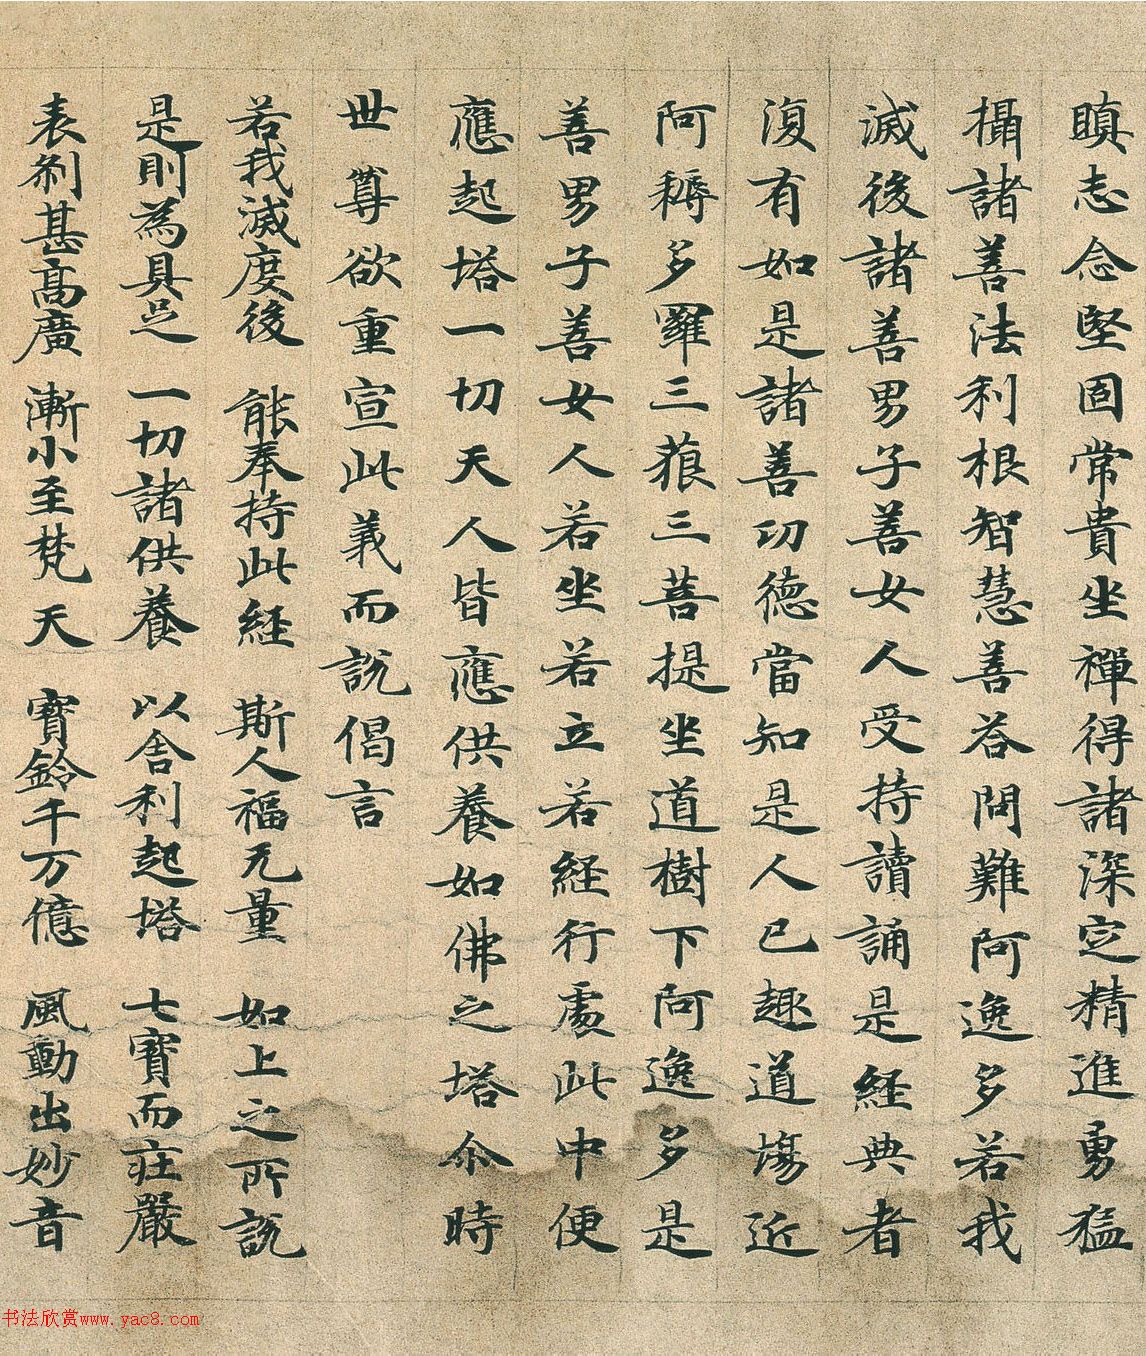 瞋志念堅固常貴坐禪得諸深定精進勇猛
攝諸善法利根智慧善荅問難阿逸多若我
滅後諸善男子善女人受持讀誦是經典者
復有如是諸善功德當知是人已趣道場近
阿耨多羅三藐三菩提坐道樹下阿逸多是
善男子善女人若坐若立若經行處此中便
應起塔一切天人皆應供養如佛之塔尒時
世尊欲重宣此義而說偈言
若我滅度後 能奉持此経 斯人福无量 如上之所說
是則為具足 一切諸供養 以舍利起塔 七寶而莊嚴
表刹甚高廣 漸小至梵天 寶鈴千万億 風動出妙音
书法欣赏www.yac8.com